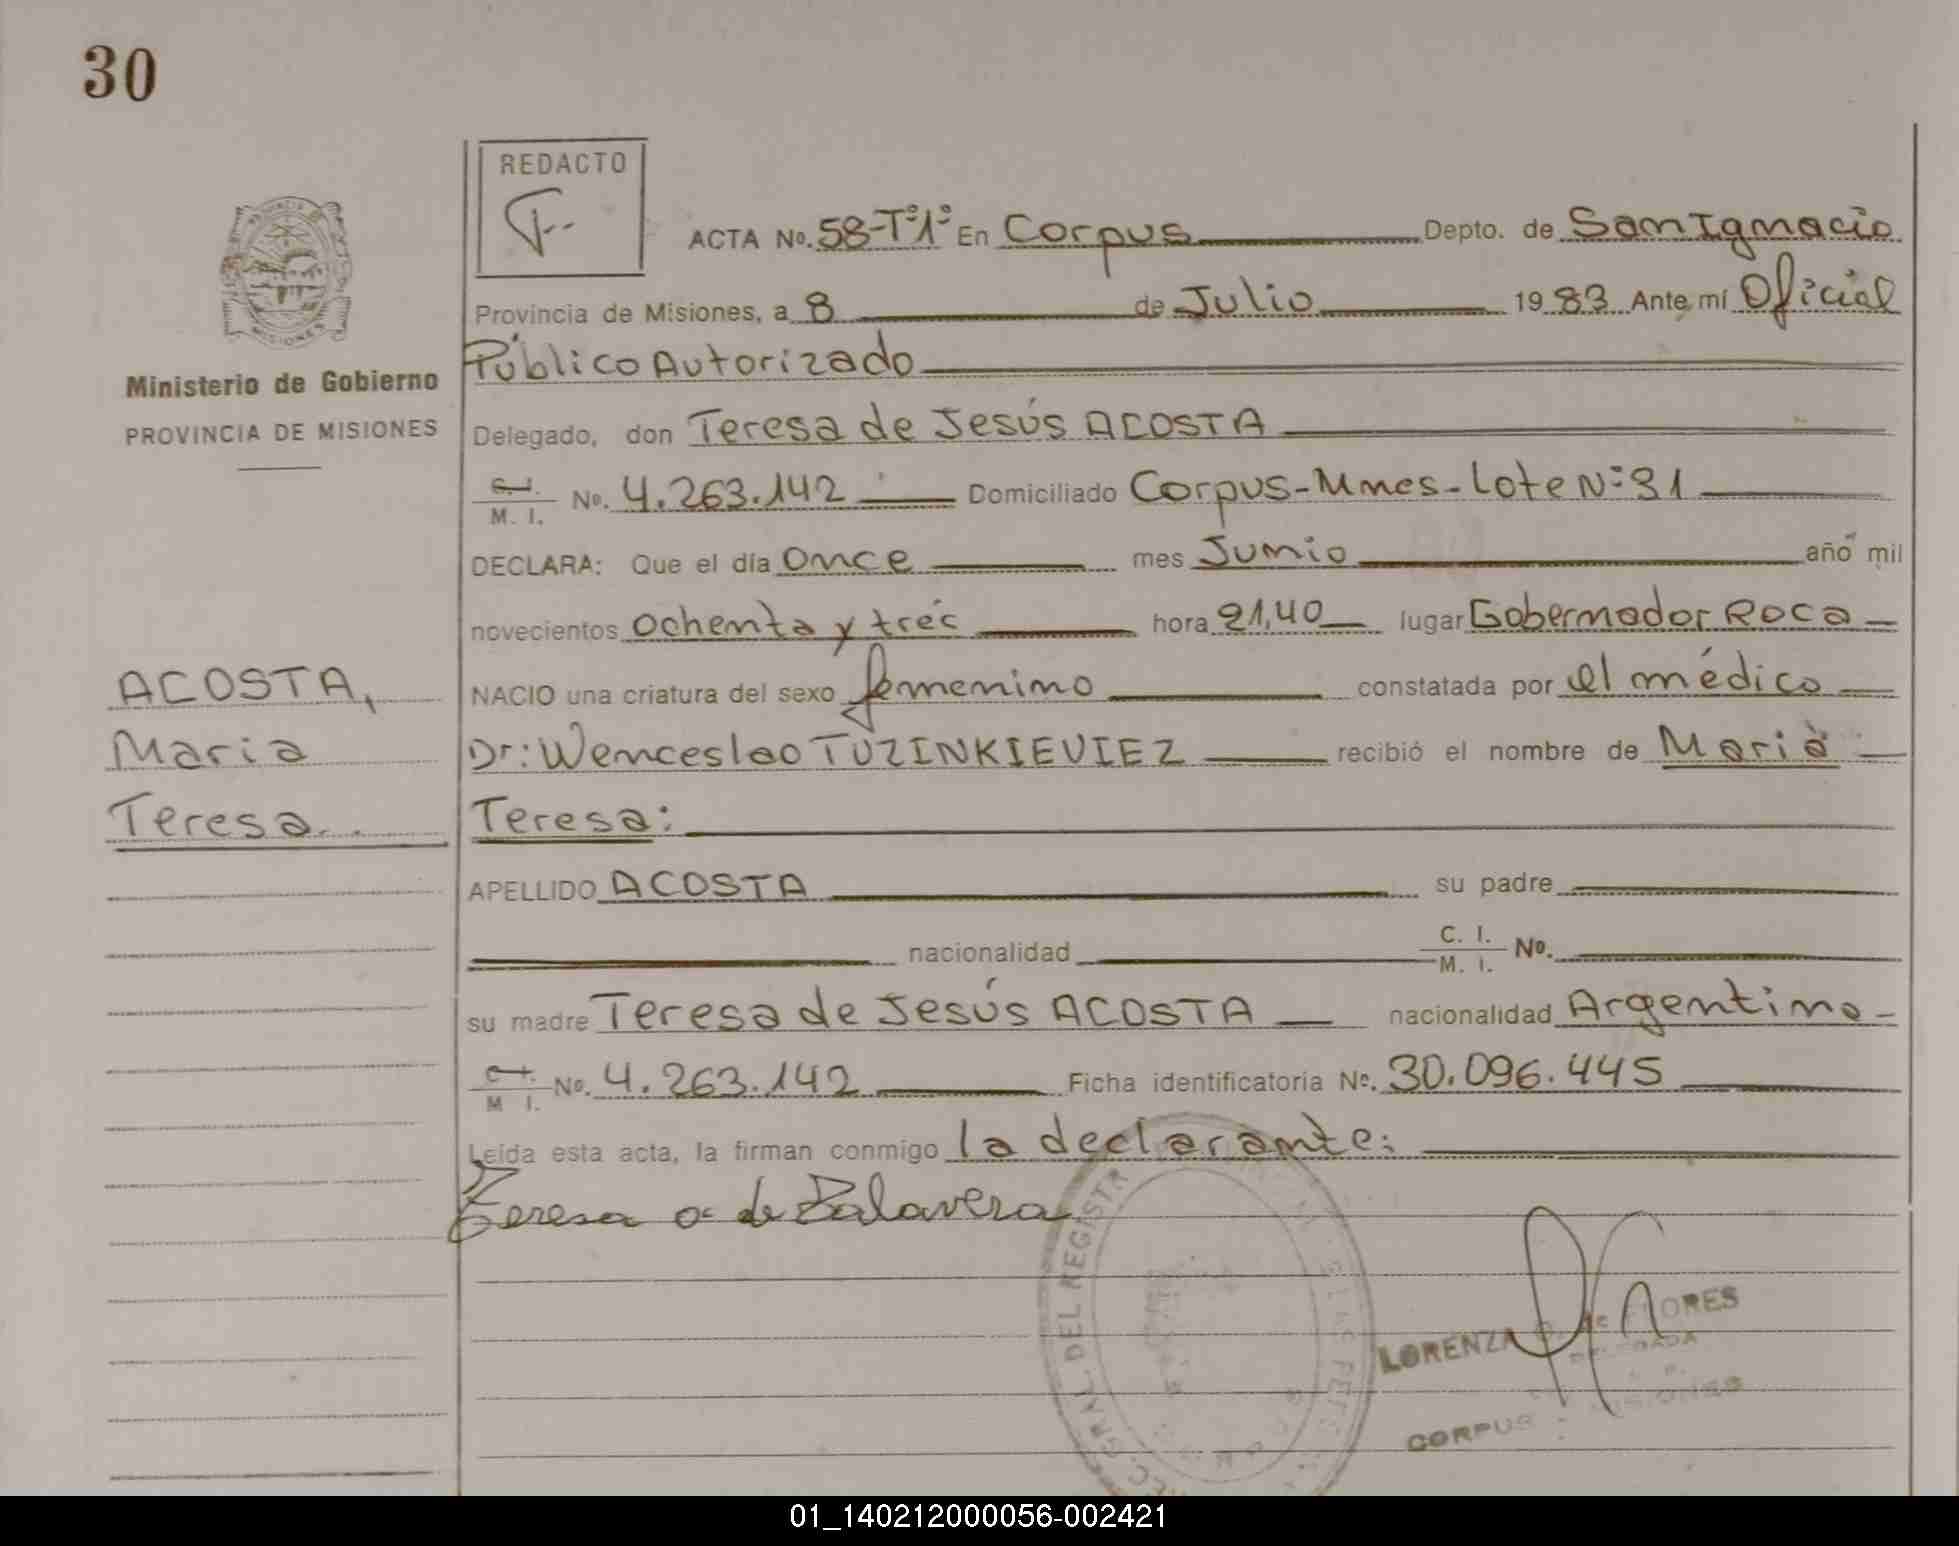 30
REDACTO
ACTA No. 58-Tº1º En Corpus Depto. de San Ignacio
Provincia de Misiones, a 8 de Julio 1983 Ante mí Oficial
Público Autorizado
Ministerio de Gobierno
PROVINCIA DE MISIONES
Delegado, don Teresa de Jesús ACOSTA
C. I. M. I. No. 4.263.142 Domiciliado Corpus-Mnes-Lote Nº 31
DECLARA: Que el día Once mes Junio año mil
novecientos Ochenta y tres hora 21,40 lugar Gobernador Roca
ACOSTA,
Maria
Teresa..
NACIO una criatura del sexo femenino constatada por el médico
Dr: Wenceslao TUZINKIEVIEZ recibió el nombre de Maria
Teresa:
APELLIDO ACOSTA su padre
nacionalidad C. I. M. I. No.
su madre Teresa de Jesús ACOSTA nacionalidad Argentina-
C. I. M I. No. 4.263.142 Ficha identificatoria No. 30.096.445
Leída esta acta, la firman conmigo la declarante:
Teresa a de Balavera
GRAL. DEL REGISTR
LORENZA FLORES
DELEGADA
CORPUS - MISIONES
01_140212000056-002421